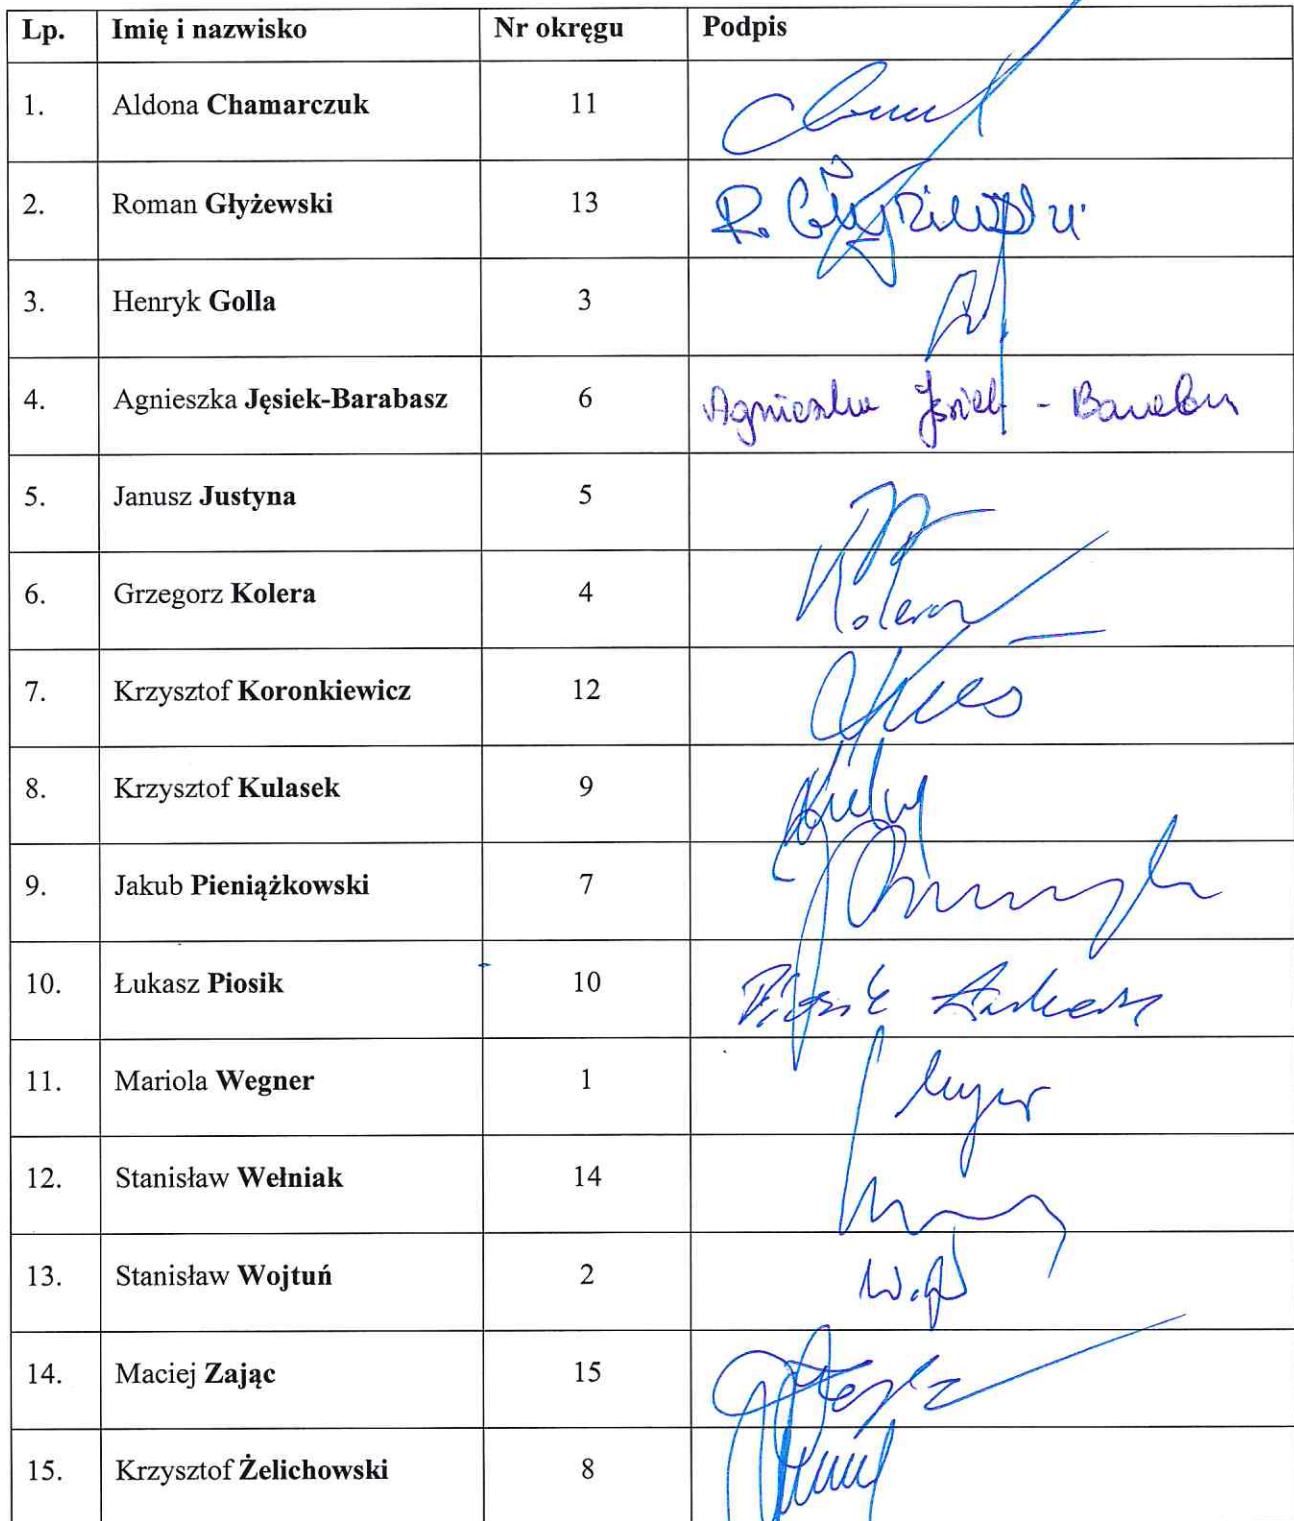 Lp. Imię i nazwisko Nr okręgu Podpis
1. Aldona Chamarczuk 11
2. Roman Głyżewski 13 R. Głyżewski
3. Henryk Golla 3
4. Agnieszka Jęsiek-Barabasz 6 Agnieszka Jęsiek - Barabasz
5. Janusz Justyna 5
6. Grzegorz Kolera 4 Kolera
7. Krzysztof Koronkiewicz 12
8. Krzysztof Kulasek 9
9. Jakub Pieniążkowski 7
10. Łukasz Piosik 10 Piosik Łukasz
11. Mariola Wegner 1
12. Stanisław Wełniak 14
13. Stanisław Wojtuń 2
14. Maciej Zając 15
15. Krzysztof Żelichowski 8